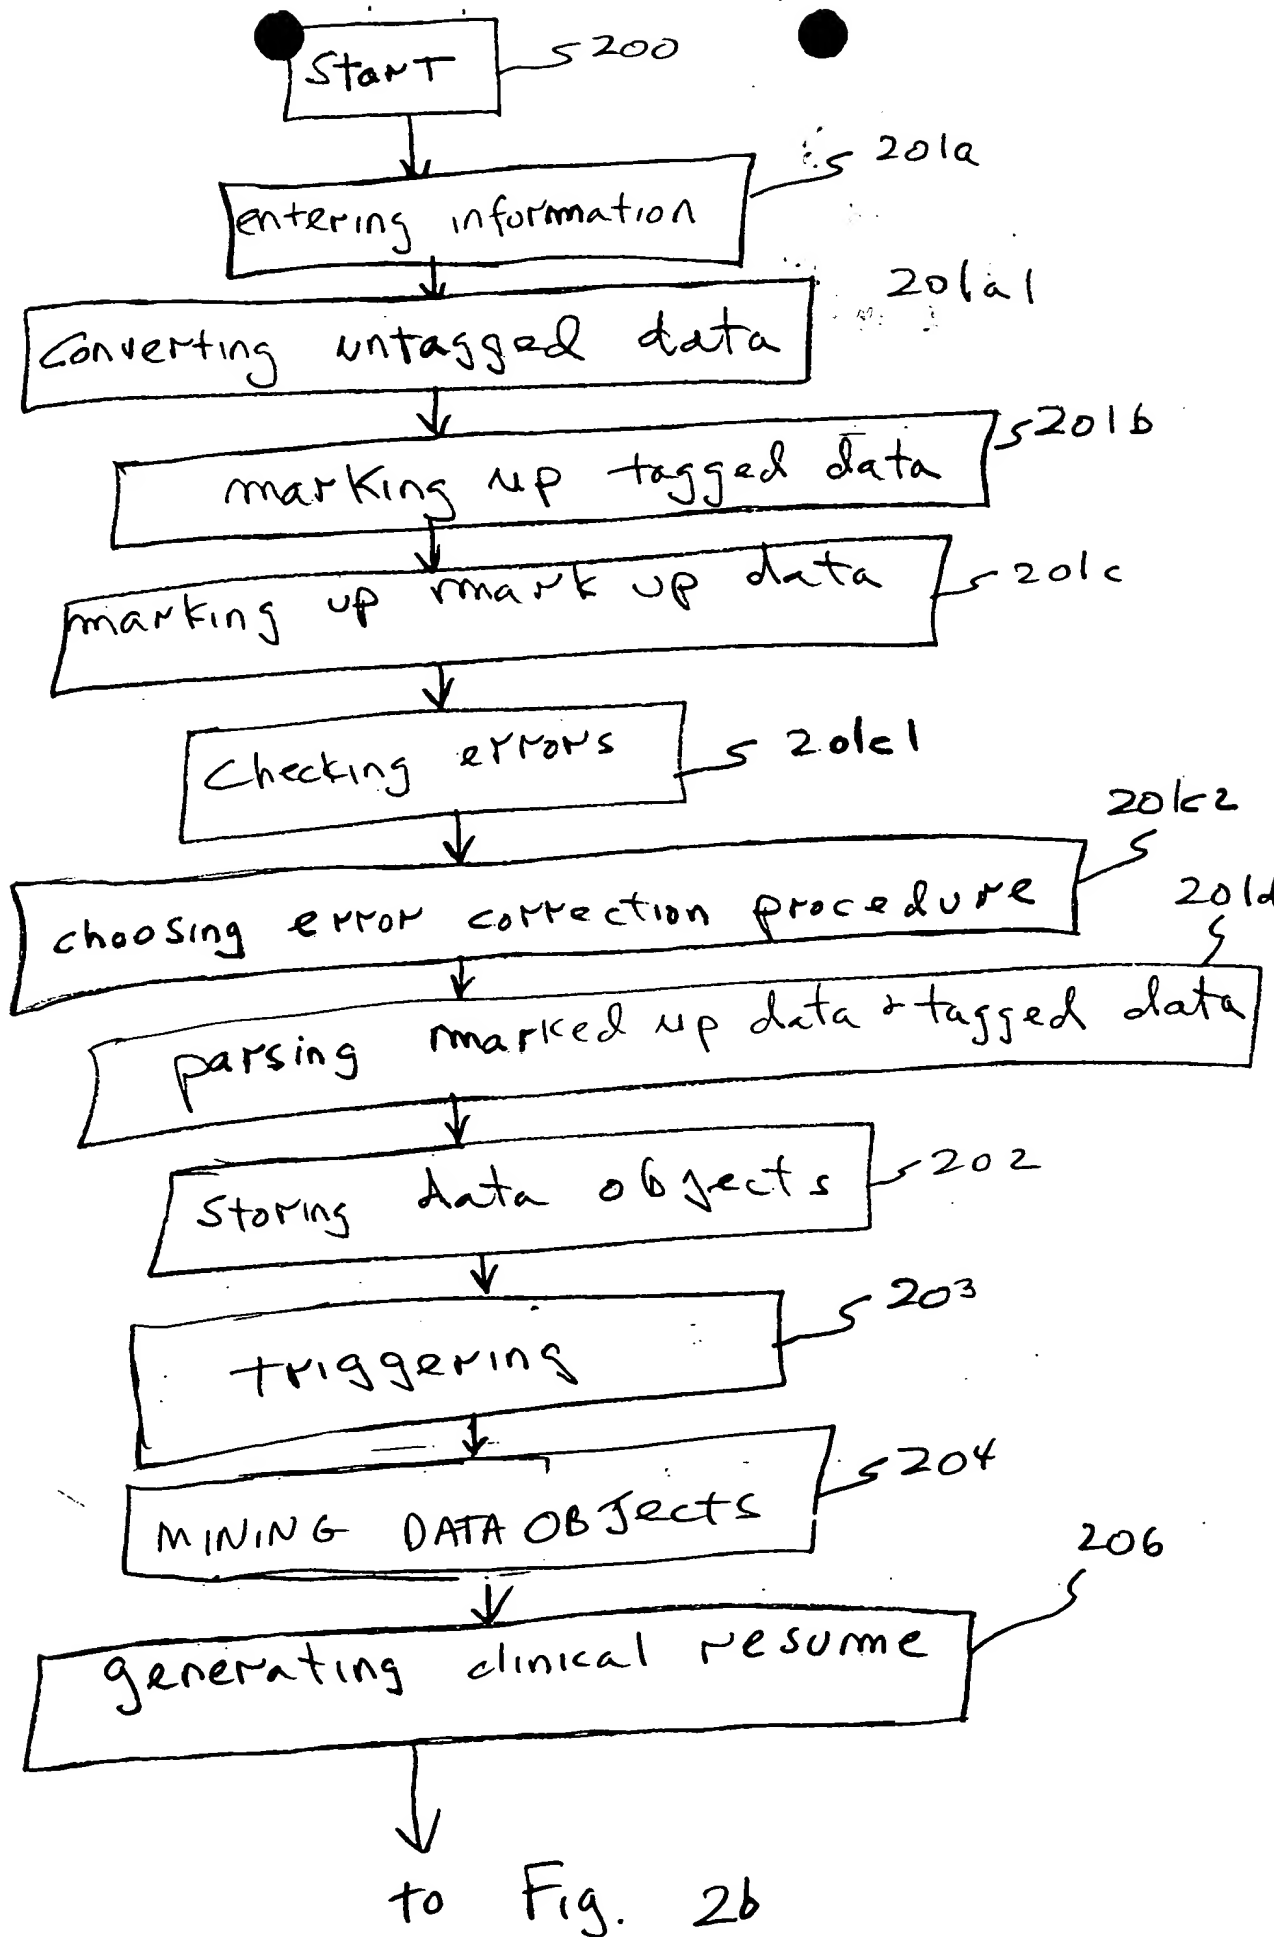 Start 200
entering information 201a
converting untagged data 201a1
marking up tagged data 201b
marking up mark up data 201c
Checking errors 201c1
201c2
choosing error correction procedure
201d
parsing marked up data + tagged data
storing data objects 202
triggering 203
MINING DATA OBJects 204
206
generating clinical resume
to Fig. 2b